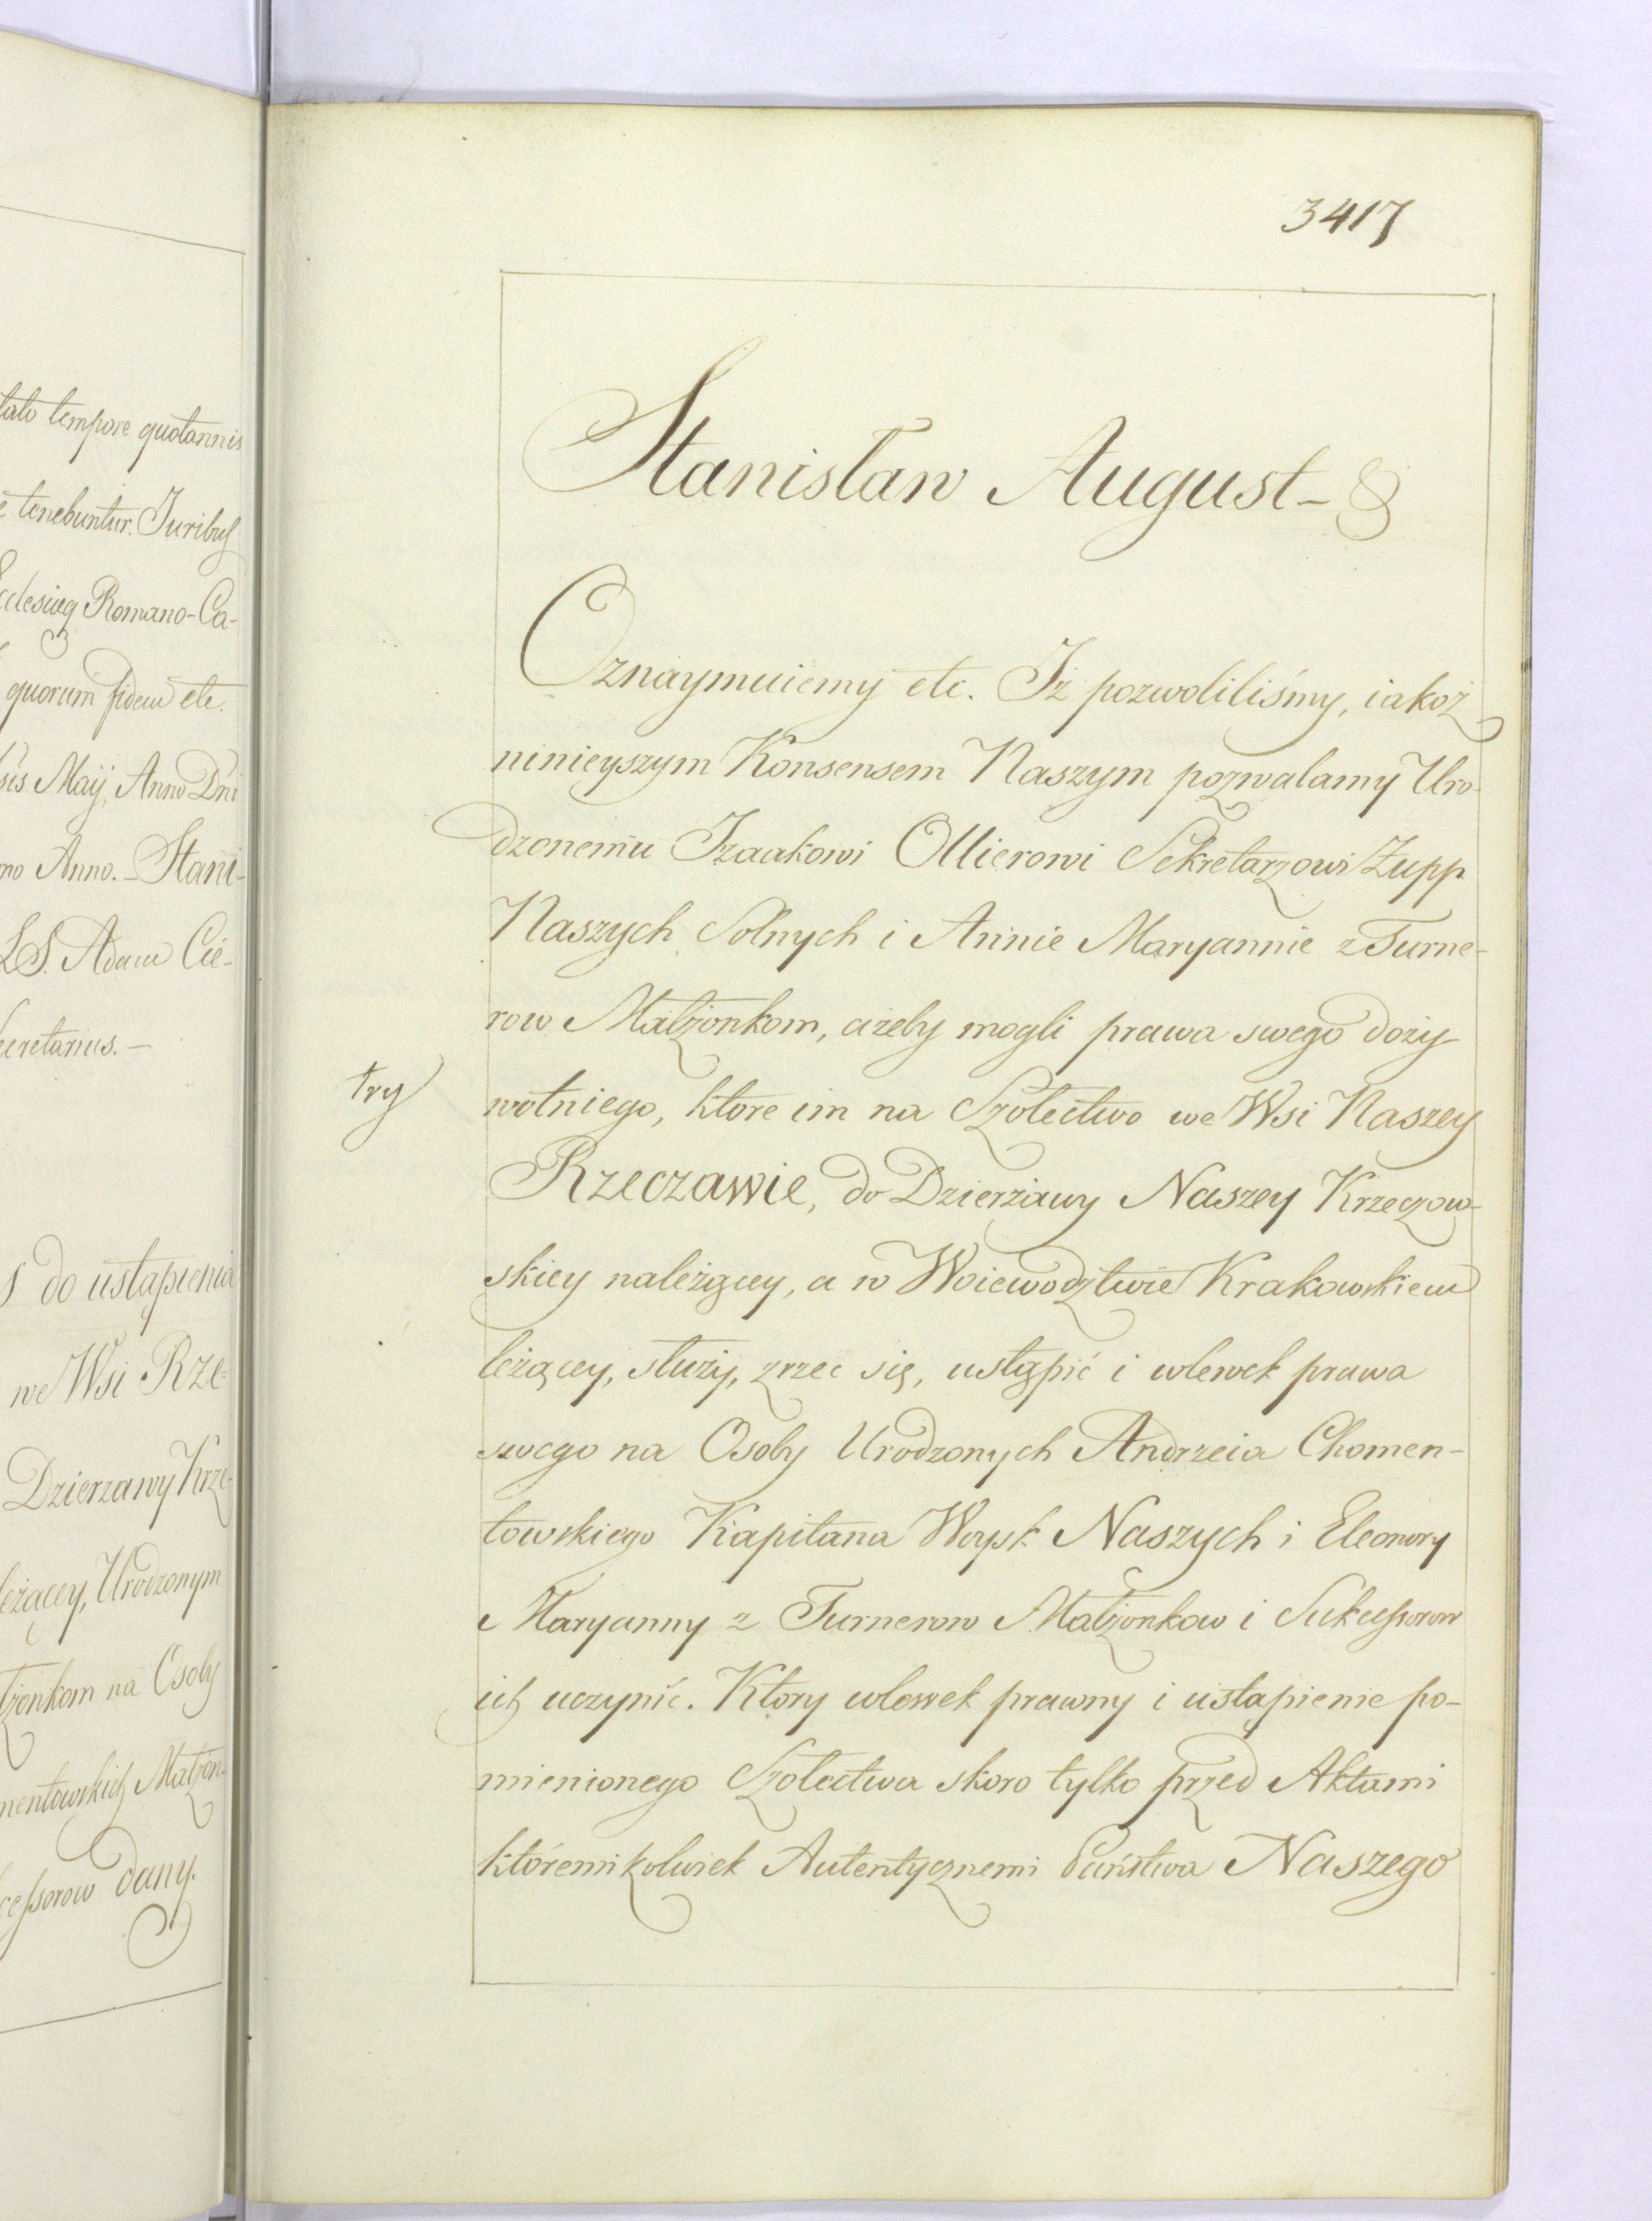 tato tempore quotannis
e tenebuntur. Juribus
Ecclesiæq Romano-Ca-
quorum fidem etc.
sis Maij, Anno Dni
mo Anno. Stani-
L.S. Adam Cie-
Secretarius. –
do ustąpienia
we Wsi Rze-
Dzierzawy Krze-
leżącey, Urodzonym
łżonkom na Osoby
mentowskich Małżon
ccessorow dany.
3417
Stanisław August -
Oznaymuiemy etc. Iż pozwoliliśmy, iakoż
ninieyszym Konsensem Naszym pozwalamy Uro-
dzonemu Izaakowi Ollierowi Sekretarzowi Zupp
Naszych Solnych i Annie Maryannie z Turne-
row Małżonkom, ażeby mogli prawa swego doży
try
wotniego, ktore im na Szołectwo we Wsi Naszey
Rzeczawie, do Dzierżawy Naszey Krzeczow-
skiey należącey, a w Woiewodztwie Krakowskiem
leżącey, służy, zrzec się, ustąpić i wlewek prawa
swego na Osoby Urodzonych Andrzeia Chomen-
towskiego Kapitana Woysk Naszych i Eleonory
Maryanny z Turnerow Małżonkow i Sukcessorow
ich uczynić. Ktory wlewek prawny i ustąpienie po-
mienionego Szołectwa skoro tylko przed Aktami
któremikolwiek Autentycznemi Państwa Naszego